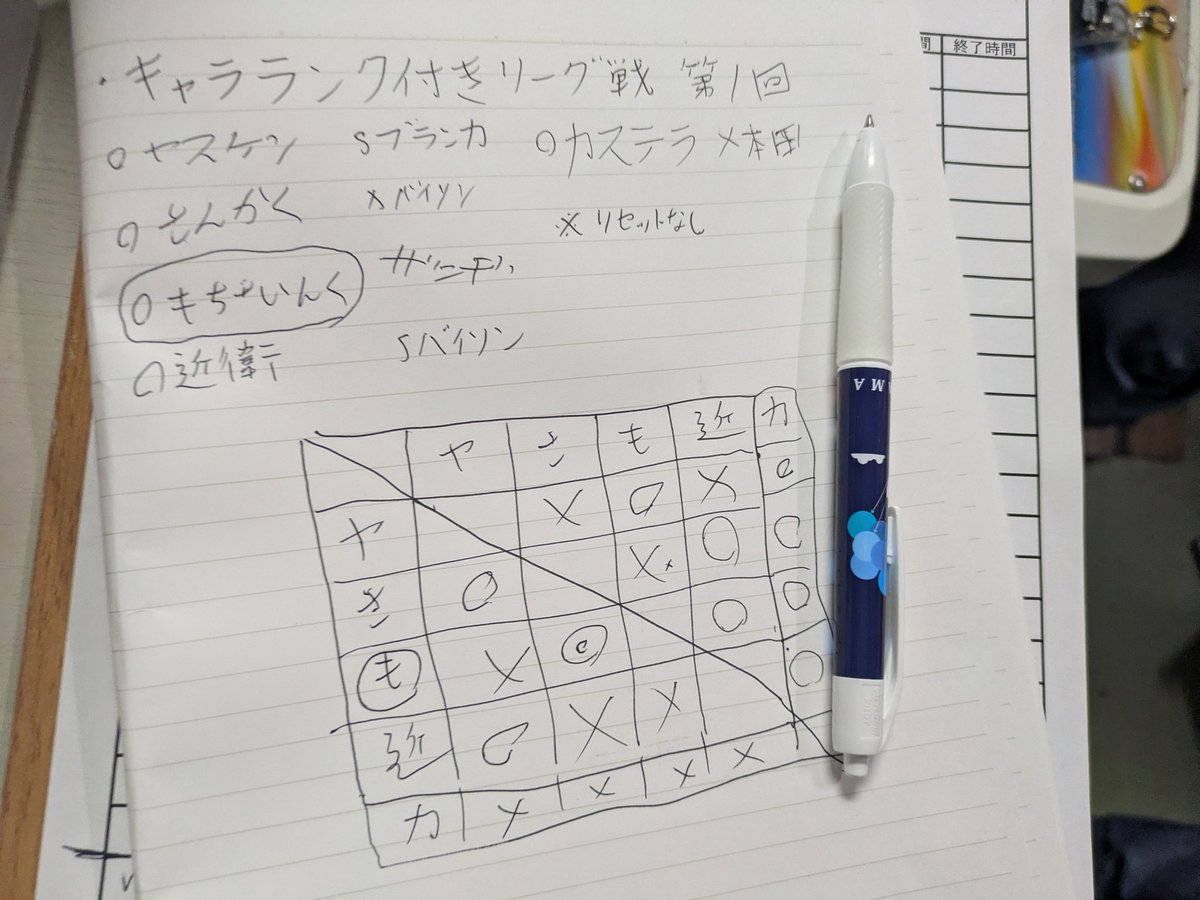 ・キャラランク付きリーグ戦 第1回
○ヤスケン Sブランカ ○カステラ ×本田
○さんかく ×バイソン
※リセットなし
○もちべいんく
○近衛 Sバイソン
ヤ さ も 近 カ
ヤ × ○ × ○
さ ○ × ○ ○
も × ◎ ○ ○
近 ○ × × ○
カ × × × ×
終了時間
間
AMA